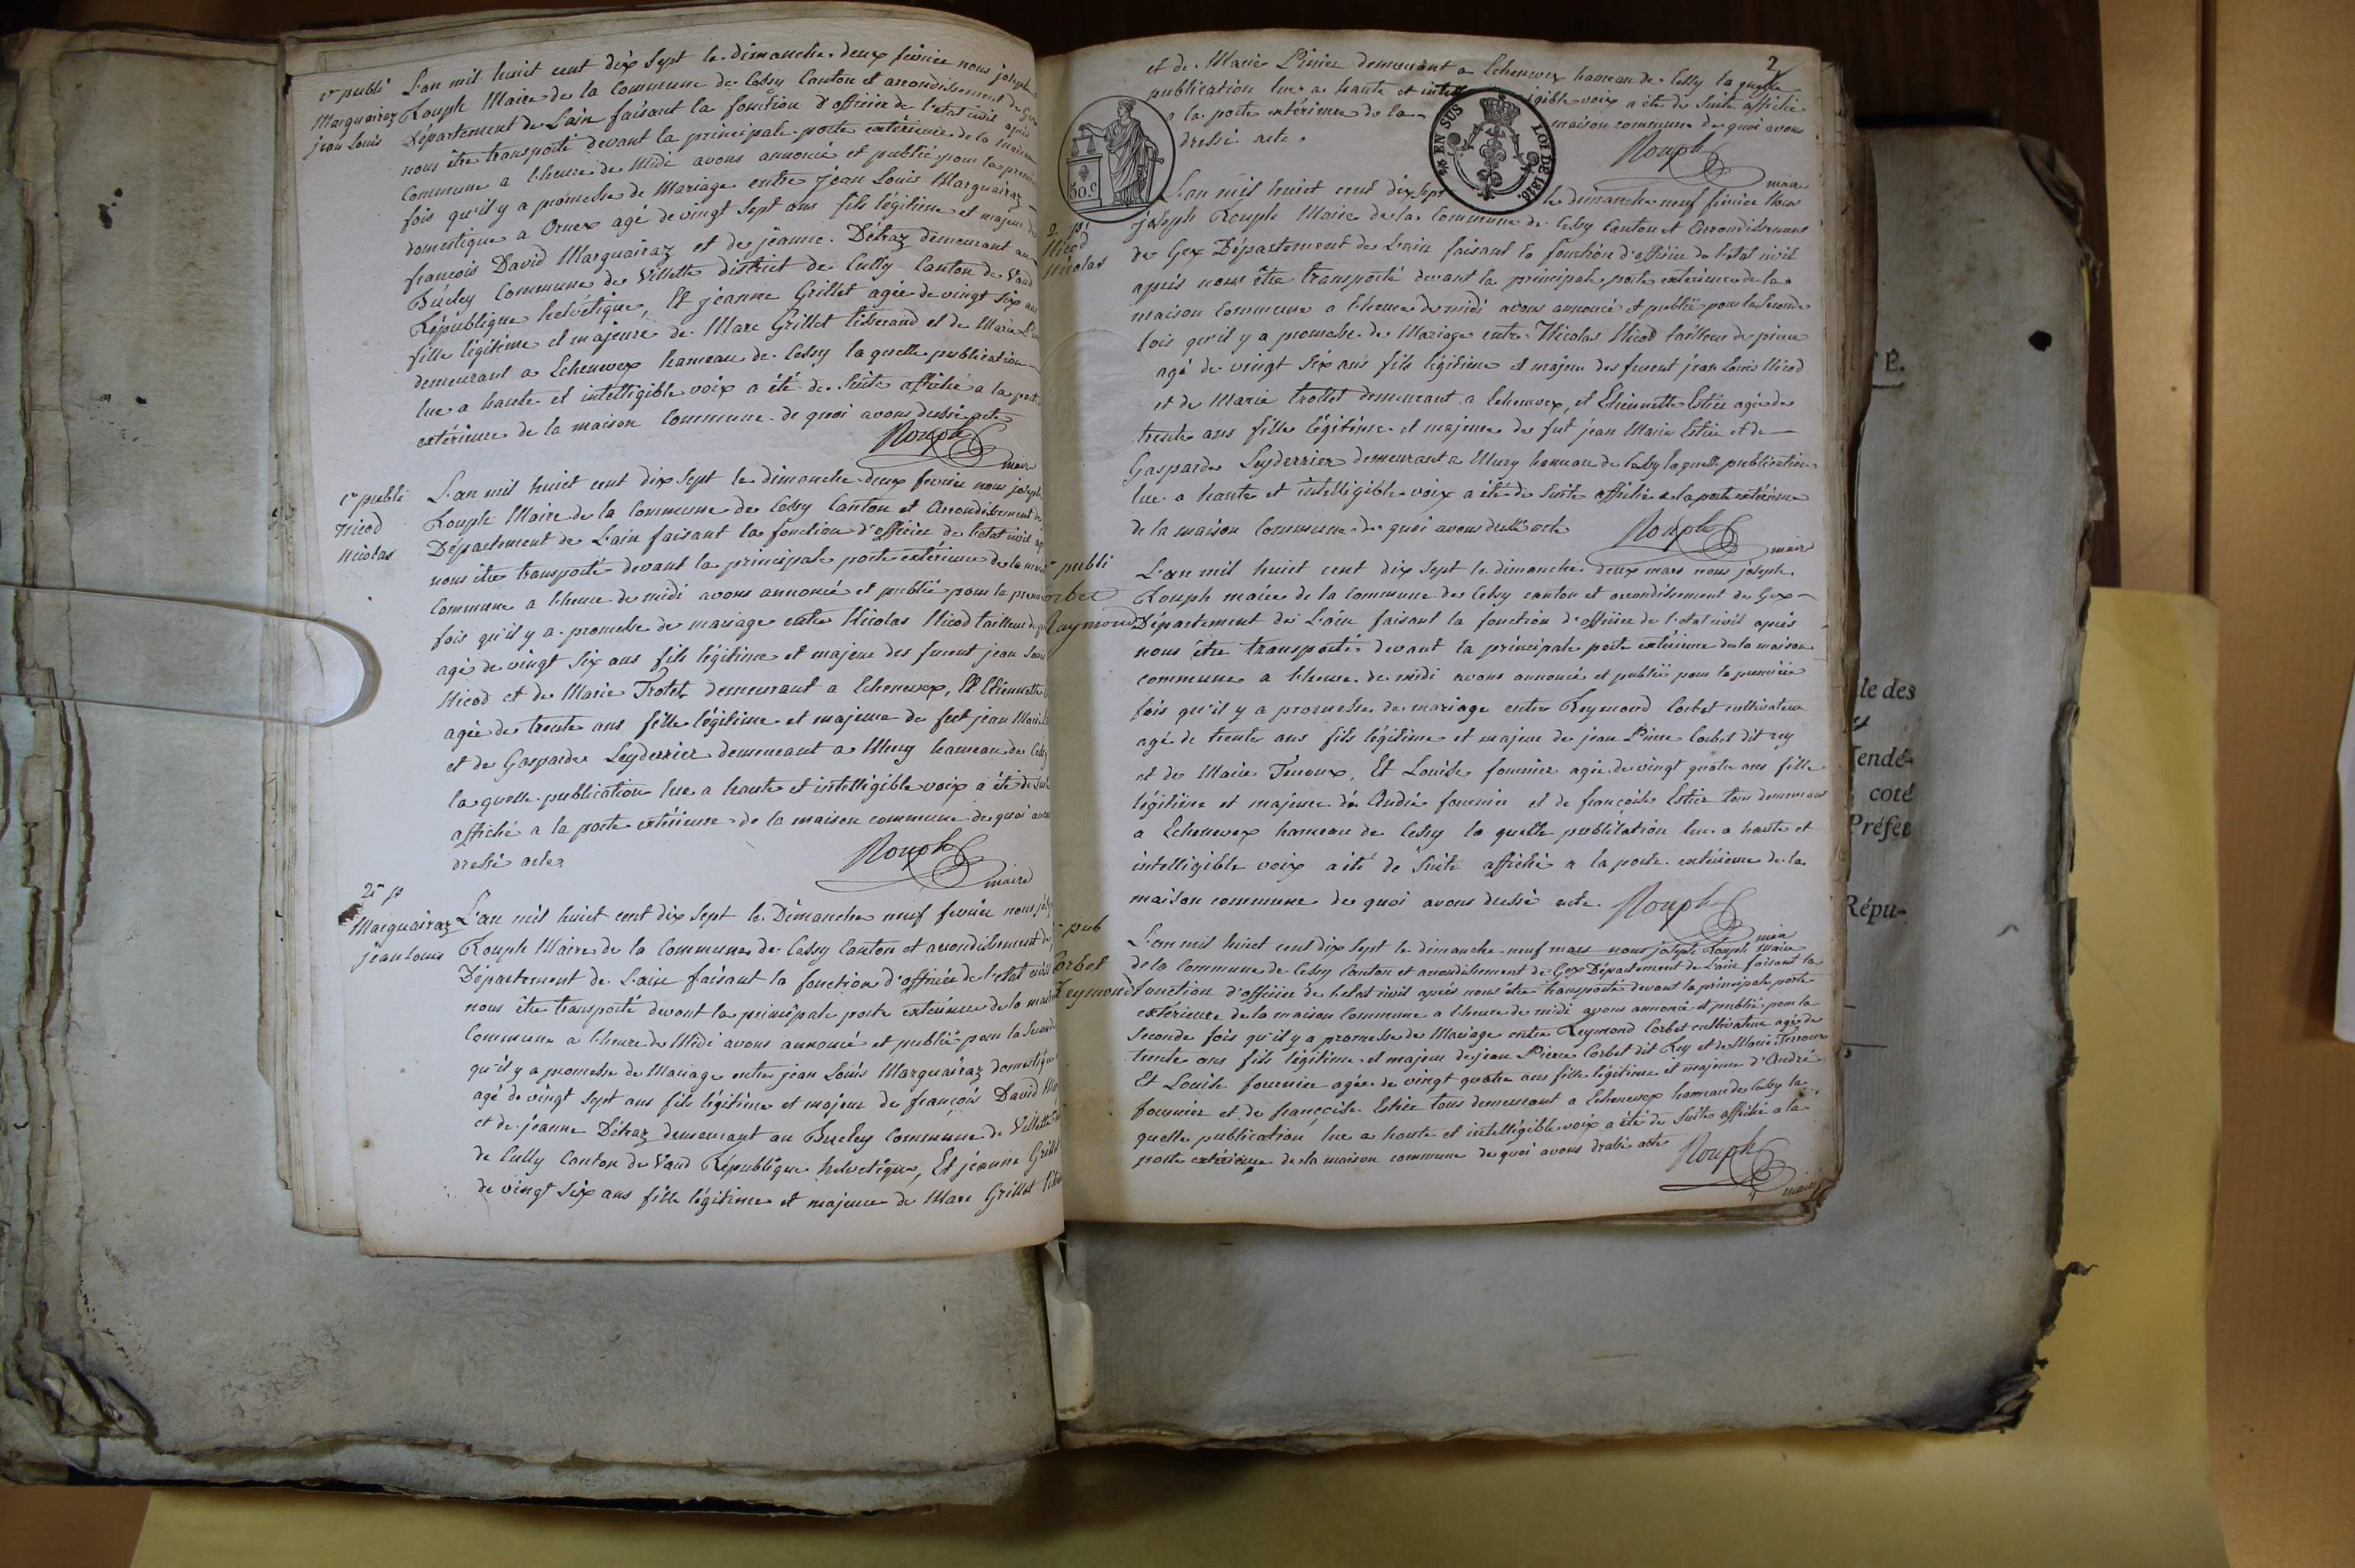 1er publi
Marguairaz
jean Louis
L'an mil huit cent dix sept le dimanche deux fevrier nous joseph
Rouph Maire de la Commune de Cessy Canton et arrondissement de Gex
Département de L'ain faisant la fonction d'officier de l'etat civil après
nous être transporté devant la principale porte extérieure de la maison
Commune a l'heure de Midi avons annoncé et publié pour la premiere
fois qu'il y a promesse de Mariage entre jean Louis Marguairaz
domestique a Ornex agé de vingt sept ans fils légitime et majeur de
françois David Marguairaz et de jeanne Détraz demeurant au
Bucley Commune de Villette district de Cully Canton de Vaud
République helvétique, Et jeanne Grillet agée de vingt six ans
fille légitime et majeure de Marc Grillet tisserand et de Marie
demeurant a Echenevex hameau de Cessy la quelle publication
lue a haute et intelligible voix a été de suite affiché a la porte
extérieure de la maison Commune de quoi avons dressé acte
Rouph
maire
1er publi
Nicod
Nicolas
L'an mil huit cent dix sept le dimanche deux fevrier nous joseph
Rouph Maire de la Commune de Cessy Canton et Arrondissement de
Département de L'ain faisant la fonction d'officier de l'etat civil ap
nous être transporté devant la principale porte extérieure de la mais
Commune a l'heure de midi avons annoncé et publié pour la premi
fois qu'il y a promesse de mariage entre Nicolas Nicod tailleur de
agé de vingt six ans fils légitime et majeur des furent jean Louis
Nicod et de Marie Trotet demeurant a Echenevex, Et Etiennette
agée de trente ans fille légitime et majeure de feut jean Marie
et de Gasparde Leyderrier demeurant a Mury hameau de Cessy
la quelle publication lue a haute et intelligible voix a été de suit
affiché a la porte extérieure de la maison commune de quoi avons
dressé acte
Rouph
maire
2me p
Marguairaz
jean Louis
L'an mil huit cent dix sept le Dimanche neuf fevrier nous jos
Rouph Maire de la Commune de Cessy Canton et arrondissement de
Département de L'ain faisant la fonction d'officier de l'etat civil
nous être transporté devant la principale porte extérieure de la mais
Commune a l'heure de Midi avons annoncé et publié pour la Seconde
qu'il y a promesse de Mariage entre jean Louis Marguairaz domestique
agé de vingt sept ans fils légitime et majeur de françois David Mar
et de jeanne Détraz demeurant au Bucley Commune de Villette
de Cully Canton de Vaud République helvetique, Et jeanne Grillet
de vingt six ans fille légitime et majeure de Marc Grillet tisse
2
et de Marie Pinier demeurant a Echenevex hameau de Cessy la quelle
publication lue a haute et intelligible voix a été de suite affichée
a la porte extérieure de la maison commune de quoi avons
dressé acte.
Rouph
maire
50 c
EN SUS
LOI DE 1816
2 p
Nicod
Nicolas
L'an mil huit cent dix sept le dimanche neuf fevrier Nous
joseph Rouph Maire de la Commune de Cessy Canton et Arrondissement
de Gex Département de L'ain faisant la fonction d'officier de l'etat civil
après nous être transporté devant la principale porte extérieure de la
maison Commune a l'heure de midi avons annoncé et publié pour la Seconde
fois qu'il y a promesse de Mariage entre Nicolas Nicod tailleur de pierre
agé de vingt six ans fils légitime et majeur des furent jean Louis Nicod
et de Marie trottet demeurant a Echenevex, et Etiennette Estier agée de
trente ans fille légitime et majeure de fut jean Marie Estier et de
Gasparde Leyderrier demeurant a Mury hameau de Cessy laquelle publication
lue a haute et intelligible voix a été de suite affichée a la porte extérieure
de la maison Commune de quoi avons dressé acte
Rouph
maire
publi
Corbet
Raymond
L'an mil huit cent dix sept le dimanche deux mars nous joseph
Rouph maire de la Commune de Cessy canton et arrondissement de Gex
Département de L'ain faisant la fonction d'officier de l'etat civil après
nous être transporté devant la principale porte extérieure de la maison
commune a l'heure de midi avons annoncé et publié pour la première
fois qu'il y a promesse de mariage entre Reymond Corbet cultivateur
agé de trente ans fils légitime et majeur de jean Pierre Corbet dit rey
et de Marie Terroux, Et Louise fournier agée de vingt quatre ans fille
légitime et majeure de André fournier et de françoise Estier tous demeurant
a Echenevex hameau de Cessy la quelle publication lue a haute et
intelligible voix a été de suite affiché a la porte extérieure de la
maison commune de quoi avons dressé acte.
Rouph
maire
pub
Corbet
Reymond
L'an mil huit cent dix sept le dimanche neuf mars nous joseph Rouph maire
de la Commune de Cessy Canton et arrondissement de Gex Département de L'ain faisant la
fonction d'officier de l'etat civil après nous être transporté devant la principale porte
extérieure de la maison Commune a l'heure de midi avons annoncé et publié pour la
Seconde fois qu'il y a promesse de Mariage entre Reymond Corbet cultivateur agé de
trente ans fils légitime et majeur de jean Pierre Corbet dit Rey et de Marie Terroux
Et Louise fournier agée de vingt quatre ans fille légitime et majeure d'André
fournier et de françoise Estier tous demeurant a Echenevex hameau de Cessy la
quelle publication lue a haute et intelligible voix a été de suite affiché a la
porte extérieure de la maison commune de quoi avons dressé acte
Rouph
maire
É.
le des
endé-
coté
Préfet
Répu-